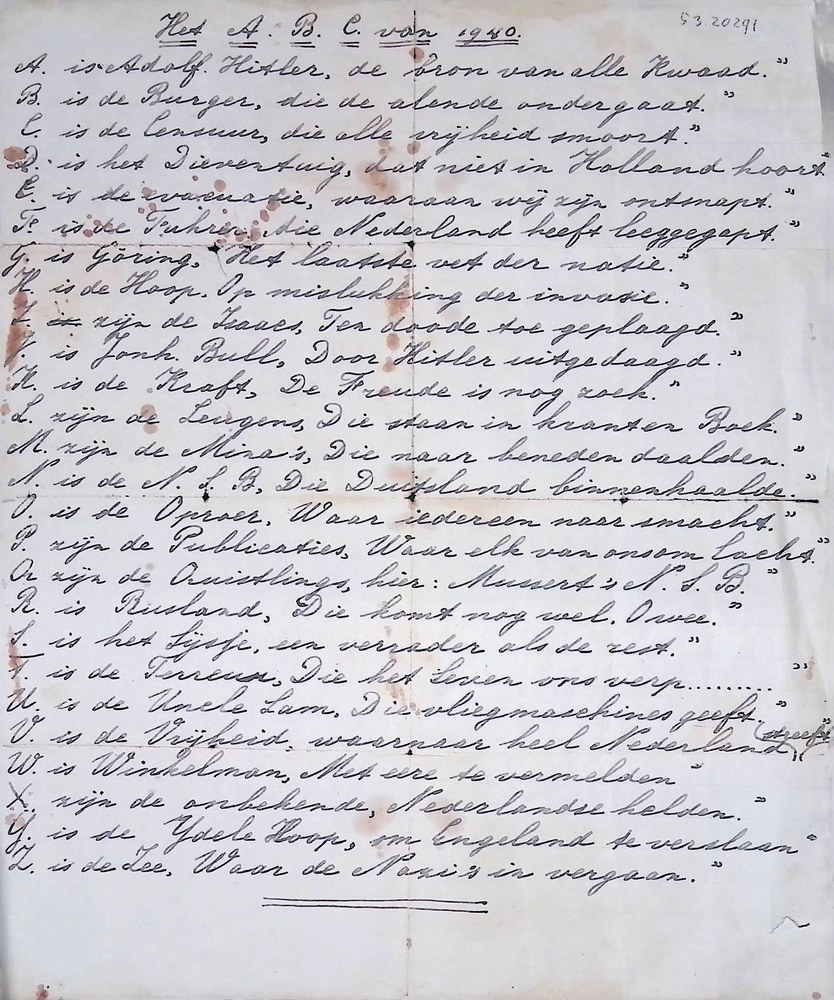 53.20291
Het A. B. C. van 1940.
A. is Adolf Hitler, de bron van alle Kwaad."
B. is de Burger, die de alende ondergaat."
C. is de Censuur, die alle vrijheid smoort."
D. is het Dieventuig, dat niet in Holland hoort"
E. is de evacuatie, waaraan wij zijn ontsnapt."
F. is de Fuhrer, die Nederland heeft leeggegapt."
G. is Göring, Het laatste vet der natie."
H. is de Hoop. Op mislukking der invasie."
I. is zijn de Isaacs, Ten doode toe geplaagd."
J. is Jonh. Bull, Door Hitler uitgedaagd."
K. is de Kraft, De Freude is nog zoek."
L. zijn de Leugens, Die staan in kranten Boek."
M. zijn de Mina's, Die naar beneden daalden."
N. is de N. S. B, Die Duitsland binnenhaalde."
O. is de Oproer, Waar iedereen naar smacht."
P. zijn de Publicaties, Waar elk van onsom Lacht."
Q zijn de Quistlings, hier: Mussert's N. S. B."
R. is Rusland, Die komt nog wel. O wee."
S. is het Sijsje, een verrader als de rest."
T. is de Terreur, Die het Leven ons verp........."
U. is de Uncle Sam, Die vliegmaschines geeft."
V. is de Vrijheid, waarnaar heel Nederland streeft"
W. is Winkelman, Met eere te vermelden"
X. zijn de onbekende, Nederlandse helden."
Y. is de Ydele Hoop, om Engeland te verslaan"
Z. is de Zee, Waar de Nazi's in vergaan."